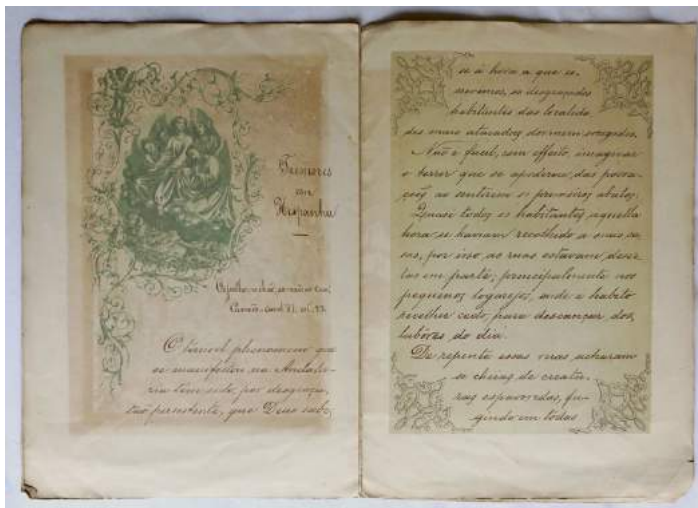 Tremores
em
Hespanha
O terrivel phenomeno que
se manifestou na Andalu-
zia tem sido, por desgraça,
tão persistente, que Deus sabe,
se á hora a que es-
crevemos, os desgraçados
habitantes das localida
des mais atacadas dormem socegados.
Não é facil, com effeito, imaginar
o terror que se apoderou das povoa-
ções ao sentirem os primeiros abalos.
Quasi todos os habitantes áquella
hora se haviam recolhido a suas ca-
sas, por isso as ruas estavam deser-
tas em parte; principalmente nos
pequenos logarejos, onde é habito
recolher cedo, para descançar dos
labôres do dia.
De repente essas ruas acharam
se cheias de creatu-
ras espavoridas, fu-
gindo em todas